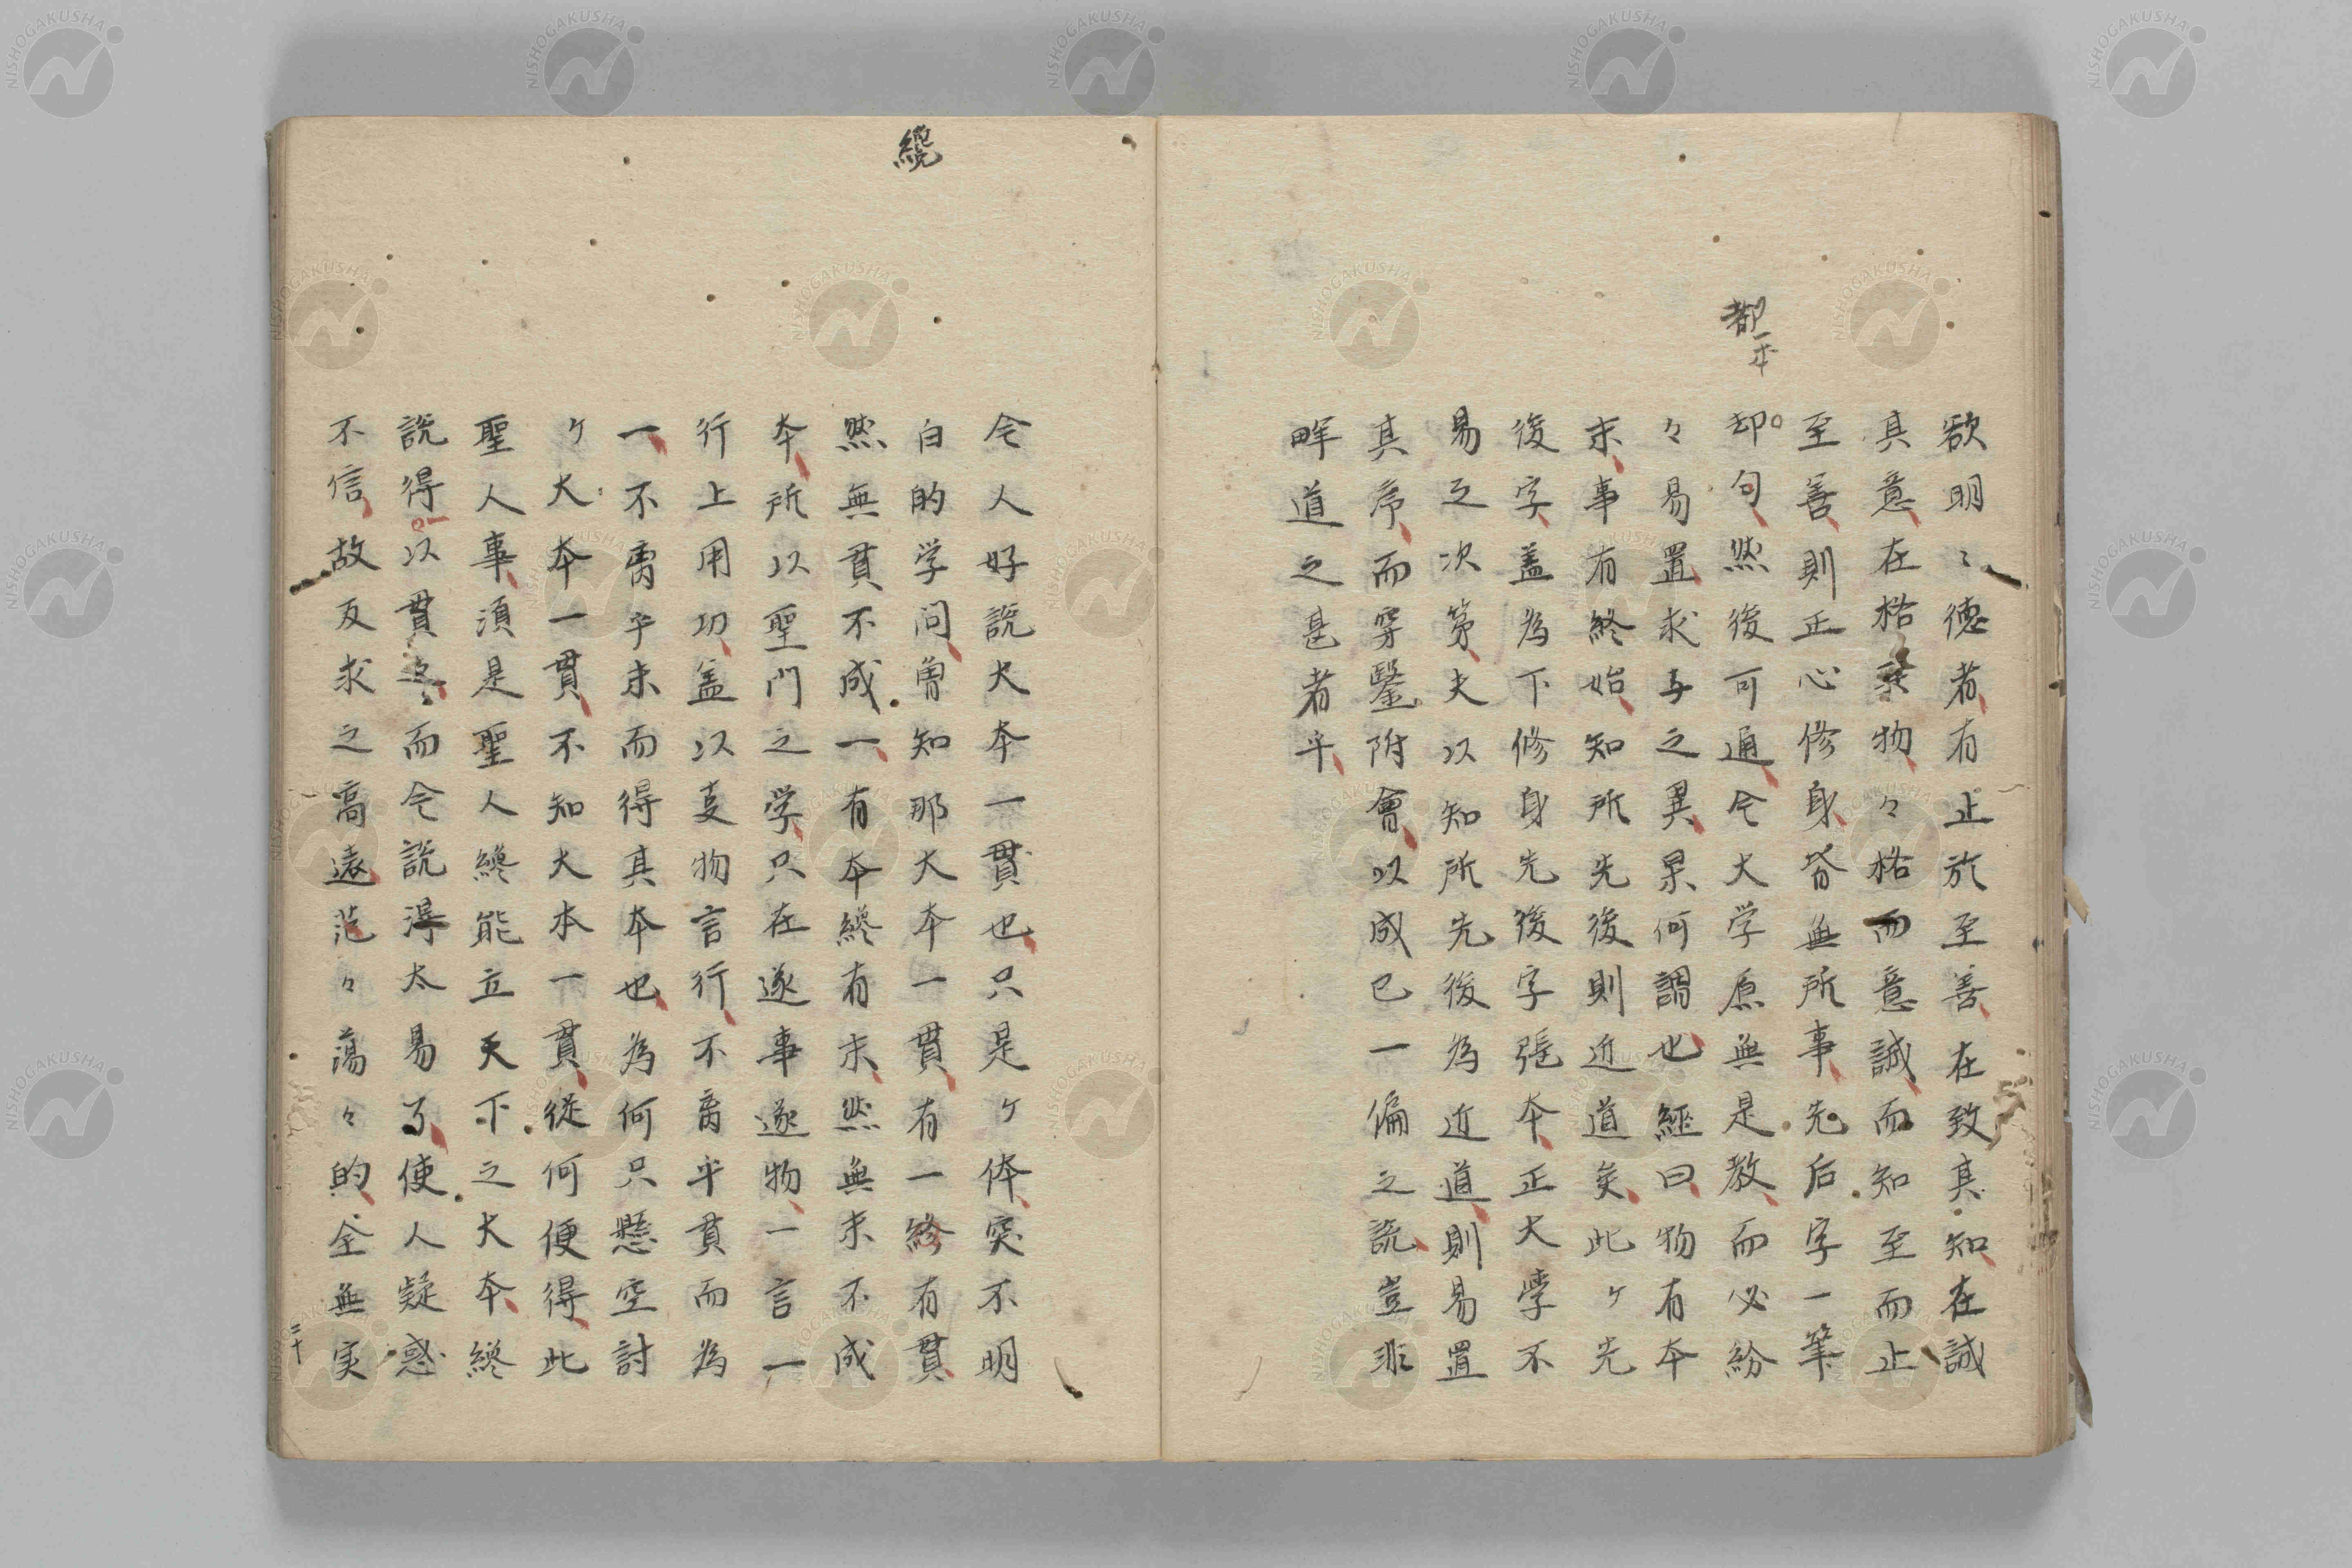 都一本
欲明〻德者有止於至善在致其知在誠
其意在格𠀋物々格而意誠而知至而止
至善則正心修身皆無所事先后字一筆
却句然後可通今大学原無是教而必紛
々易置求与之異果何謂也經曰物有本
末事有終始知所先後則近道矣此ケ先
後字盖為下修身先後字張本正大學不
易之次第夫以知所先後為近道則易置
其序而穿鑿附會以成已一偏之說豈非
畔道之甚者乎
纔
今人好說大本一貫也只是ケ体突不明
白的学問曽知那大本一貫有一終有貫
然無貫不成一有本纔有末然無末不成
本所以聖門之学只在遂事遂物一言一
行上用功盖以㕝物言行不离乎貫而為
一不离乎末而得其本也為何只懸空討
ケ大本一貫不知大本一貫從何便得此
聖人事須是聖人纔能立天下之大本纔
說得以貫之而今說得太易了使人疑惑
不信故反求之高遠茫々蕩々的全無実
二十
NISHOGAKUSHA